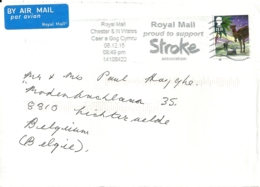 BY AIR MAIL
par avion
Royal Mail
Royal Mail
Chester & N Wales
Caer a Gog Cymru
08.12.15
08:49 pm
14109402
Royal Mail
proud to support
Stroke
association
Mr & Mrs Paul
35.
8810
Belgium
(België).